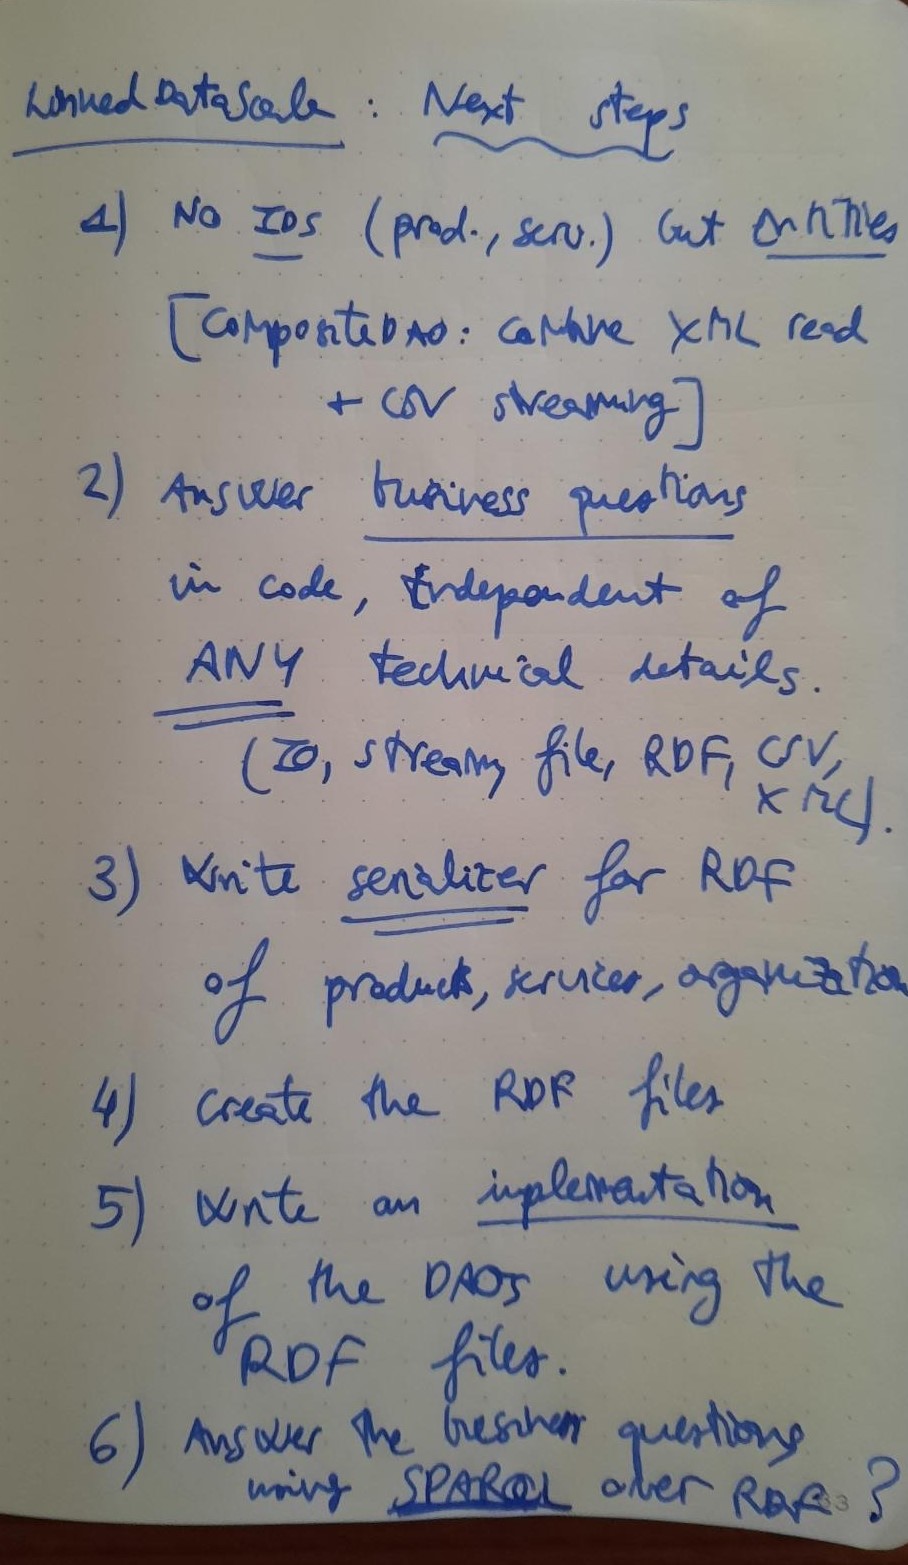 LinkedDataScala : Next steps
1) No IDs (prod., serv.) but entities
[CompositeDAO: combine XML read
+ CSV streaming]
2) Answer business questions
in code, independent of
ANY technical details.
(IO, stream, file, RDF, CSV,
XML).
3) Write serializer for RDF
of products, services, organization
4) Create the RDF files
5) Write an implementation
of the DAOs using the
RDF files.
6) Answer the business questions
using SPARQL over RDF ?